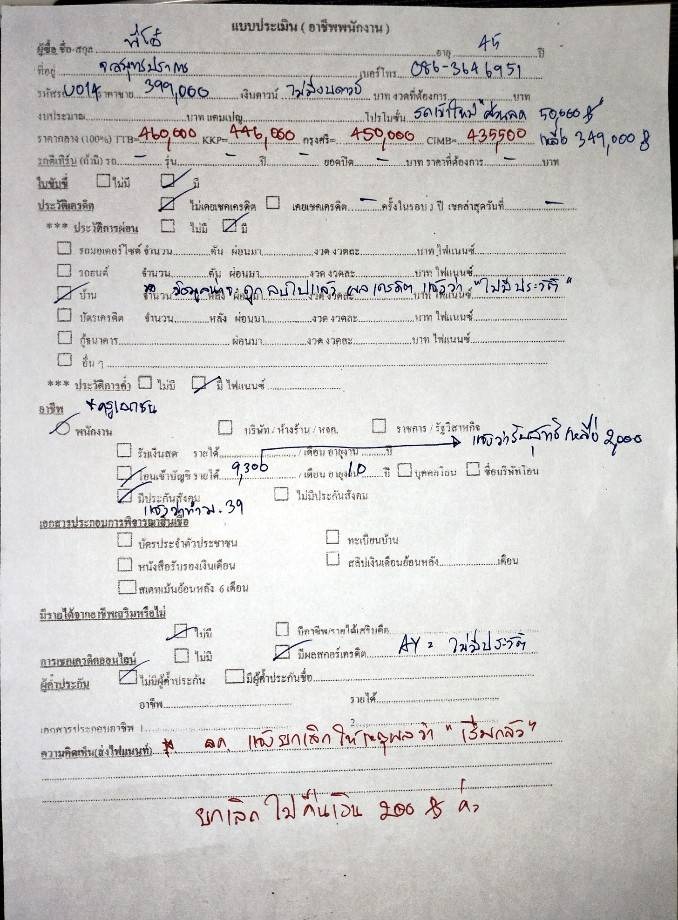 แบบประเมิน ( อาชีพพนักงาน )
ผู้ซื้อ ชื่อ-สกุล พี่โอ๋ อายุ 45 ปี
ที่อยู่ จ.สมุทรปราการ เบอร์โทร 086-3646951
รหัสรถ U014 ราคาขาย 399,000 เงินดาวน์ ไม่มีงบดาวน์ บาท งวดที่ต้องการ บาท
งบประมาณ บาท แคมเปญ โปรโมชั่น รถเข้าใหม่ ส่วนลด 50,000 ฿
ราคากลาง (100%) TTB= 460,000 KKP= 446,000 กรุงศรี= 450,000 CIMB= 435,500 เหลือ 349,000 ฿
รถตีเทิร์น (ถ้ามี) รถ - รุ่น - ปี - ยอดปิด - บาท ราคาที่ต้องการ - บาท
ใบขับขี่ ไม่มี มี
ประวัติเครดิต ไม่เคยเชคเครดิต เคยเชคเครดิต - ครั้งในรอบ 3 ปี เชคล่าสุดวันที่ -
*** ประวัติการผ่อน ไม่มี มี
รถมอเตอร์ไซค์ จำนวน คัน ผ่อนมา งวด งวดละ บาท ไฟแนนซ์
รถยนต์ จำนวน คัน ผ่อนมา งวด งวดละ บาท ไฟแนนซ์
บ้าน จำนวน หลัง ผ่อนมา งวด งวดละ บาท ไฟแนนซ์
ถูกลบไปแล้ว ผลเครดิต แจ้งว่า "ไม่มีประวัติ"
บัตรเครดิต จำนวน หลัง ผ่อนมา งวด งวดละ บาท ไฟแนนซ์
กู้ธนาคาร ผ่อนมา งวด งวดละ บาท ไฟแนนซ์
อื่น ๆ
*** ประวัติการค้ำ ไม่มี มี ไฟแนนซ์
อาชีพ *ครูเอกชน
พนักงาน บริษัท / ห้างร้าน / หจก. ราชการ / รัฐวิสาหกิจ
แจ้งว่ารับสุทธิเหลือ 2,000
รับเงินสด รายได้ / เดือน อายุงาน ปี
โอนเข้าบัญชี รายได้ 9,300 / เดือน อายุงาน 10 ปี บุคคลโอน ชื่อบริษัทโอน
มีประกันสังคม ไม่มีประกันสังคม
แจ้งว่าทำ ม. 39
เอกสารประกอบการพิจารณาสินเชื่อ
บัตรประจำตัวประชาชน ทะเบียนบ้าน
หนังสือรับรองเงินเดือน สลิปเงินเดือนย้อนหลัง เดือน
สเตทเม้นย้อนหลัง 6 เดือน
มีรายได้จากอาชีพเสริมหรือไม่
ไม่มี มีอาชีพ/รายได้เสริมคือ
การเชคเครดิตออนไลน์ ไม่มี มีผลสกอร์เครดิต AY = ไม่มีประวัติ
ผู้ค้ำประกัน ไม่มีผู้ค้ำประกัน มีผู้ค้ำประกันชื่อ
อาชีพ รายได้
เอกสารประกอบอาชีพ 1. 2.
ความคิดเห็น(ส่งไฟแนนท์) * ลค แจ้งยกเลิก ให้เหตุผลว่า "เริ่มกลัว"
ยกเลิก ไม่คืนเงิน 200 ฿ ค่ะ